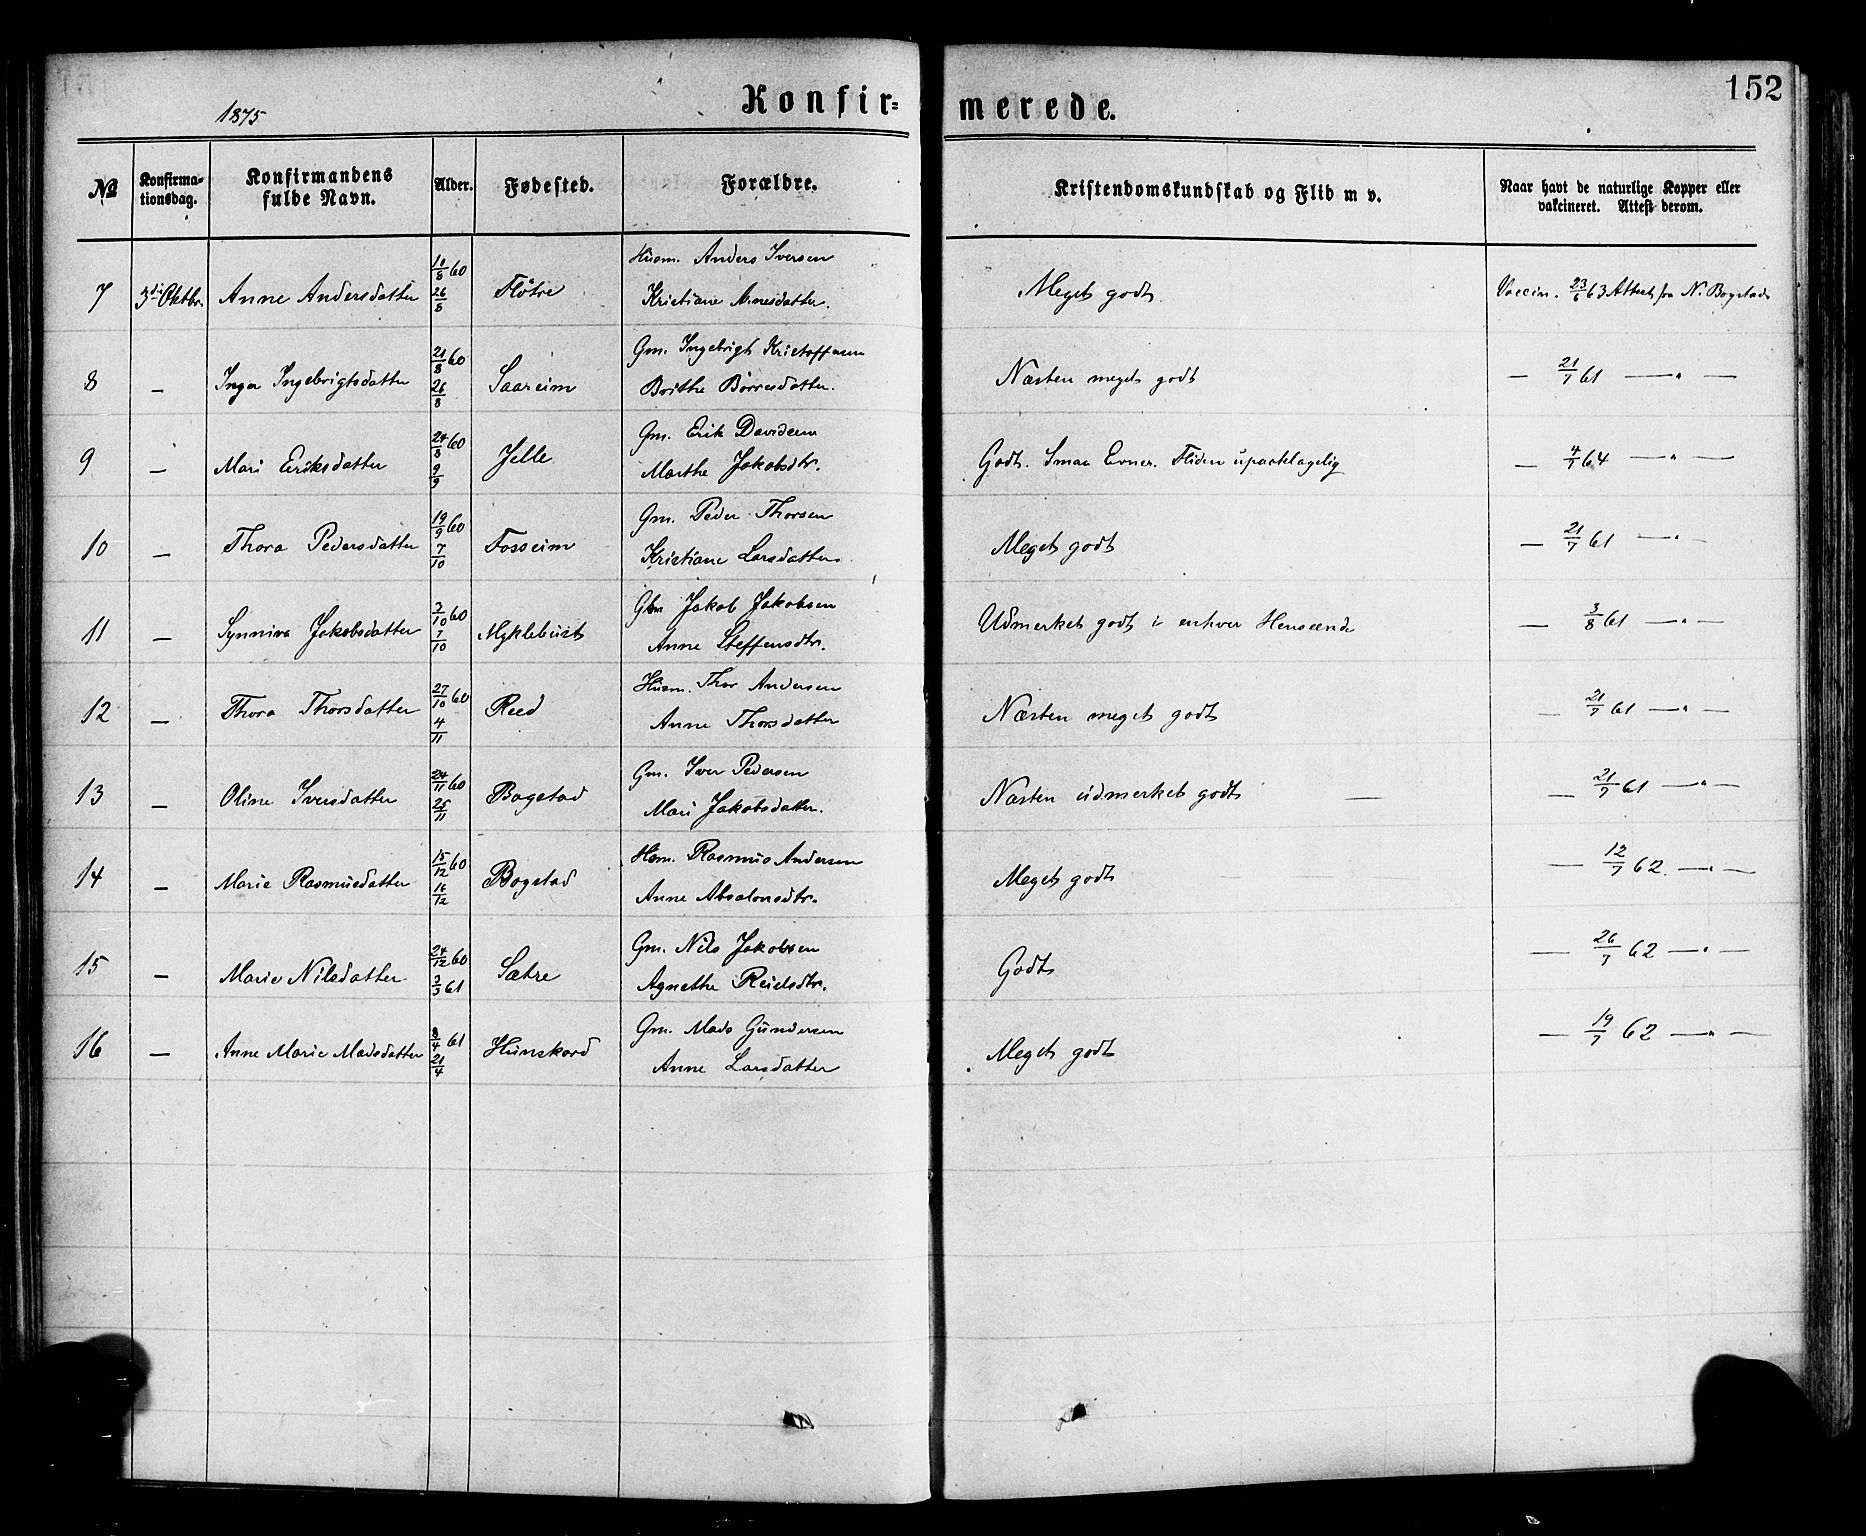 152
1875
Konfir=merede.
№ Konfirma-tionsdag. Konfirmandens fulde Navn. Alder. Fødested. Forældre. Kristendomskundskab og Flid m v. Naar havt de naturlige Kopper eller vakcineret. Attest derom.
Husm. Anders Iversen
7 3die Oktbr. Anne Andersdatter 10/8 60 26/8 Fløtre Kristiane Arnesdatter. Meget godt. Vaccin. 23/6 63 Attest fra N. Bogstad
Gm. Ingebrigt Kristoffersen
8 — Inger Ingebrigtsdatter 21/8 60 26/8 Saareim Brithe Børresdatter. Næsten meget godt — 21/7 61 —"—
Gm. Erik Davidsen
9 — Mari Eriksdatter 24/8 60 9/9 Jelle Marthe Jakobsdtr. Godt. Smaa Evner. Fliden upaaklagelig — 4/7 64 —"—
Gm. Peder Thorsen
10 — Thora Pedersdatter 19/9 60 7/10 Fosseim Kristiane Larsdatter. Meget godt — 21/7 61 —"—
Jakob Jakobsen
11 — Synniva Jakobsdatter 3/10 60 7/10 Myklebust Anne Steffensdtr. Udmerket godt i enhver Henseende — 3/8 61 —"—
Husm. Thor Andersen
12 — Thora Thorsdatter 27/10 60 4/11 Reed Anne Thorsdatter Næsten meget godt — 21/7 61 —"—
Gm. Iver Pedersen
13 — Oline Iversdatter 24/11 60 25/11 Bogstad Mari Jakobsdatter. Næsten udmerket godt — — 21/7 61 —"—
Hsm. Rasmus Andersen
14 — Marie Rasmusdatter 15/12 60 16/12 Bogstad Anne Absalonsdtr. Meget godt — 12/7 62. —"—
Gm. Nils Jakobsen
15 — Marie Nilsdatter 24/12 60 3/3 61 Sætre Agnethe Reielsdtr. Godt — 26/7 62 —"—
Gm. Mads Gundersen
16 — Anne Marie Madsdatter 8/4 61 21/4 Hunskord Anne Larsdatter Meget godt — 19/7 62 —"—